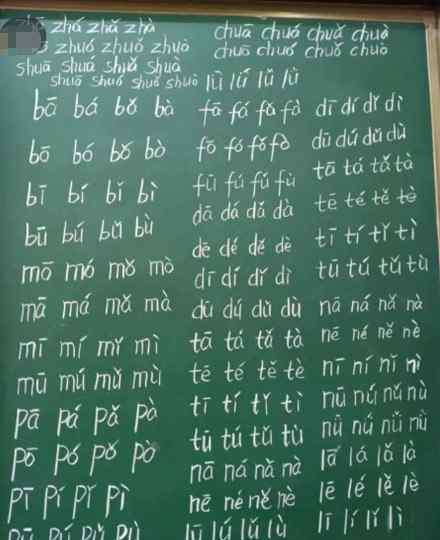 zhá zhǎ zhà
zhuó zhuǒ zhuò
shuā shuá shuǎ shuà
shuō shuó shuǒ shuò
bā bá bǎ bà
bō bó bǒ bò
bī bí bǐ bì
bū bú bǔ bù
mō mó mǒ mò
mā má mǎ mà
mī mí mǐ mì
mū mú mǔ mù
pā pá pǎ pà
pō pó pǒ pò
pī pí pǐ pì
pū pú pǔ pù
chuā chuá chuǎ chuà
chuō chuó chuǒ chuò
lǖ lǘ lǚ lǜ
fā fá fǎ fà
fō fó fǒ fò
fū fú fǔ fù
dā dá dǎ dà
dē dé dě dè
dī dí dǐ dì
dū dú dǔ dù
tā tá tǎ tà
tē té tě tè
tī tí tǐ tì
tū tú tǔ tù
nā ná nǎ nà
nē né ně nè
lū lú lǔ lù
dī dí dǐ dì
dū dú dǔ dù
tā tá tǎ tà
tē té tě tè
tī tí tǐ tì
tū tú tǔ tù
nā ná nǎ nà
nē né ně nè
nī ní nǐ nì
nū nú nǔ nù
nǖ nǘ nǚ nǜ
lā lá lǎ là
lē lé lě lè
lī lí lǐ lì